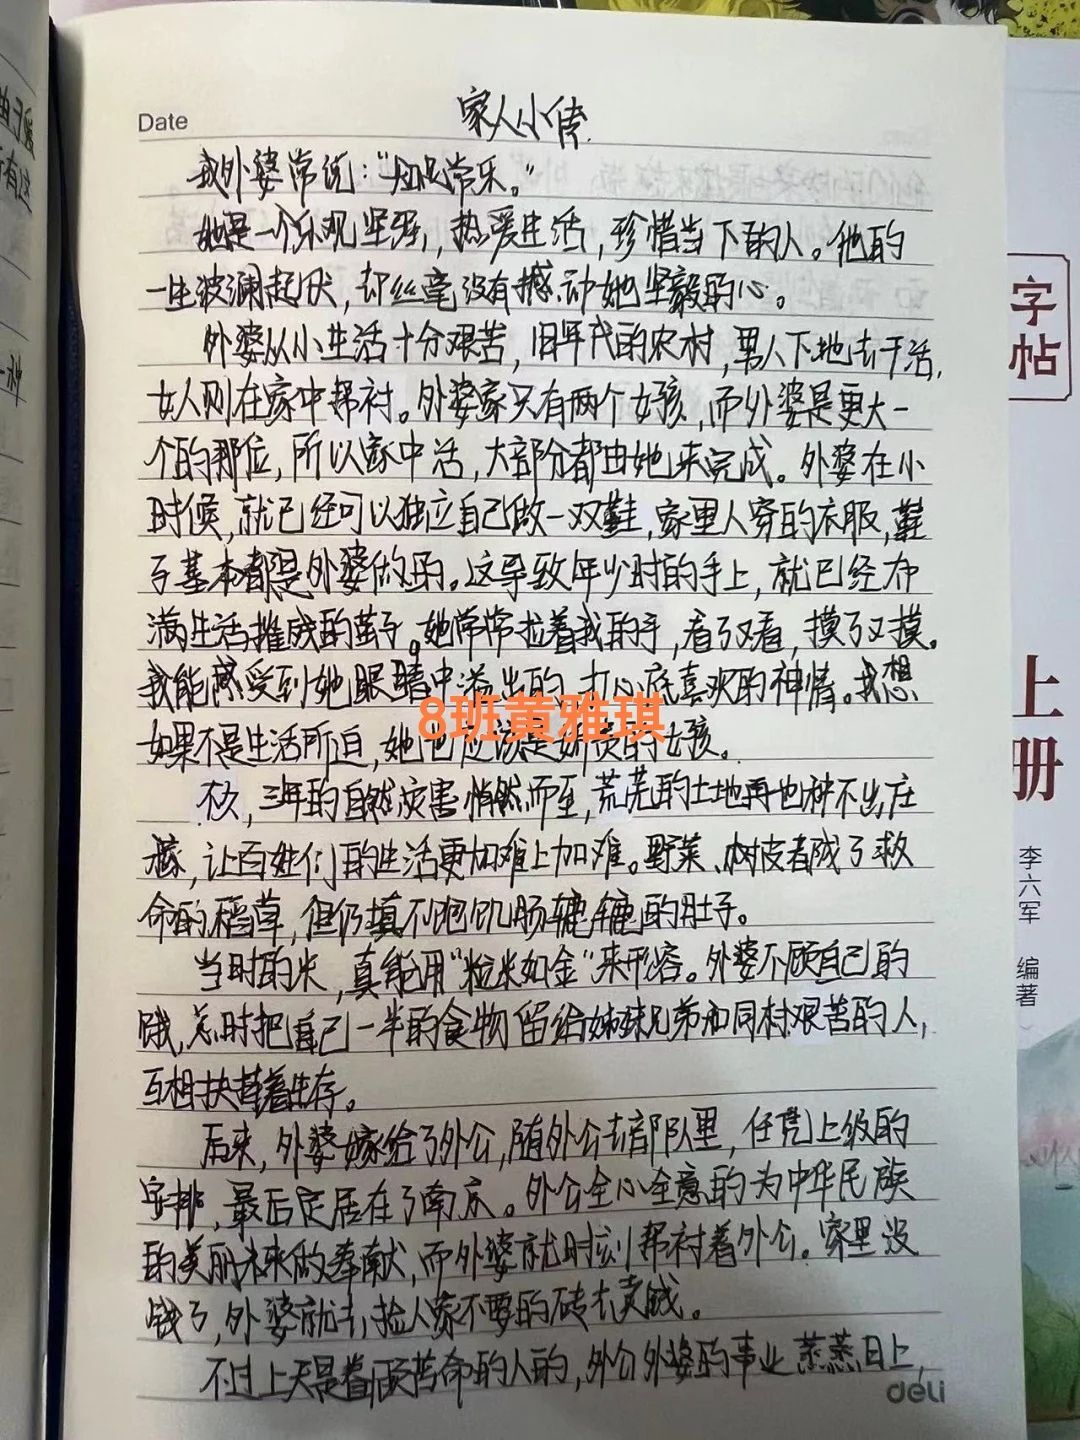 Date
家人小传
我外婆常说："知足常乐。"
她是一个乐观坚强，热爱生活，珍惜当下的人。他的
一生波澜起伏，却丝毫没有撼动她坚毅的心。
外婆从小生活十分艰苦，旧年代的农村，男人下地去干活，
女人则在家中帮衬。外婆家只有两个女孩，而外婆是更大一
个的那位，所以家中活，大部分都由她来完成。外婆在小
时候，就已经可以独立自己做一双鞋，家里人穿的衣服，鞋
子基本都是外婆做的。这导致年少时的手上，就已经布
满生活摧成的茧子。她常常拉着我的手，看了又看，摸了又摸。
我能感受到她眼睛中溢出的，打心底喜欢的神情。我想
8班黄雅琪
如果不是生活所迫，她也应该是娇贵的女孩。
不久，三年的自然灾害悄然而至，荒芜的土地再也种不出庄
稼，让百姓们的生活更加难上加难。野菜、树皮都成了救
命的稻草，但仍填不饱饥肠辘辘的肚子。
当时的米，真能用"粒米如金"来形容。外婆不顾自己的
饿，怎时把自己一半的食物留给姊妹兄弟和同村艰苦的人，
互相扶着生存。
后来，外婆嫁给了外公，随外公去部队里，任凭上级的
安排，最后定居在了南京。外公全心全意的为中华民族
的美丽未来做奉献，而外婆就时刻帮衬着外公。家里没
钱了，外婆就去捡人家不要的砖去卖钱。
不过上天是眷顾苦命的人的，外公外婆的事业蒸蒸日上，
deli
字帖
上册
李六军 编著